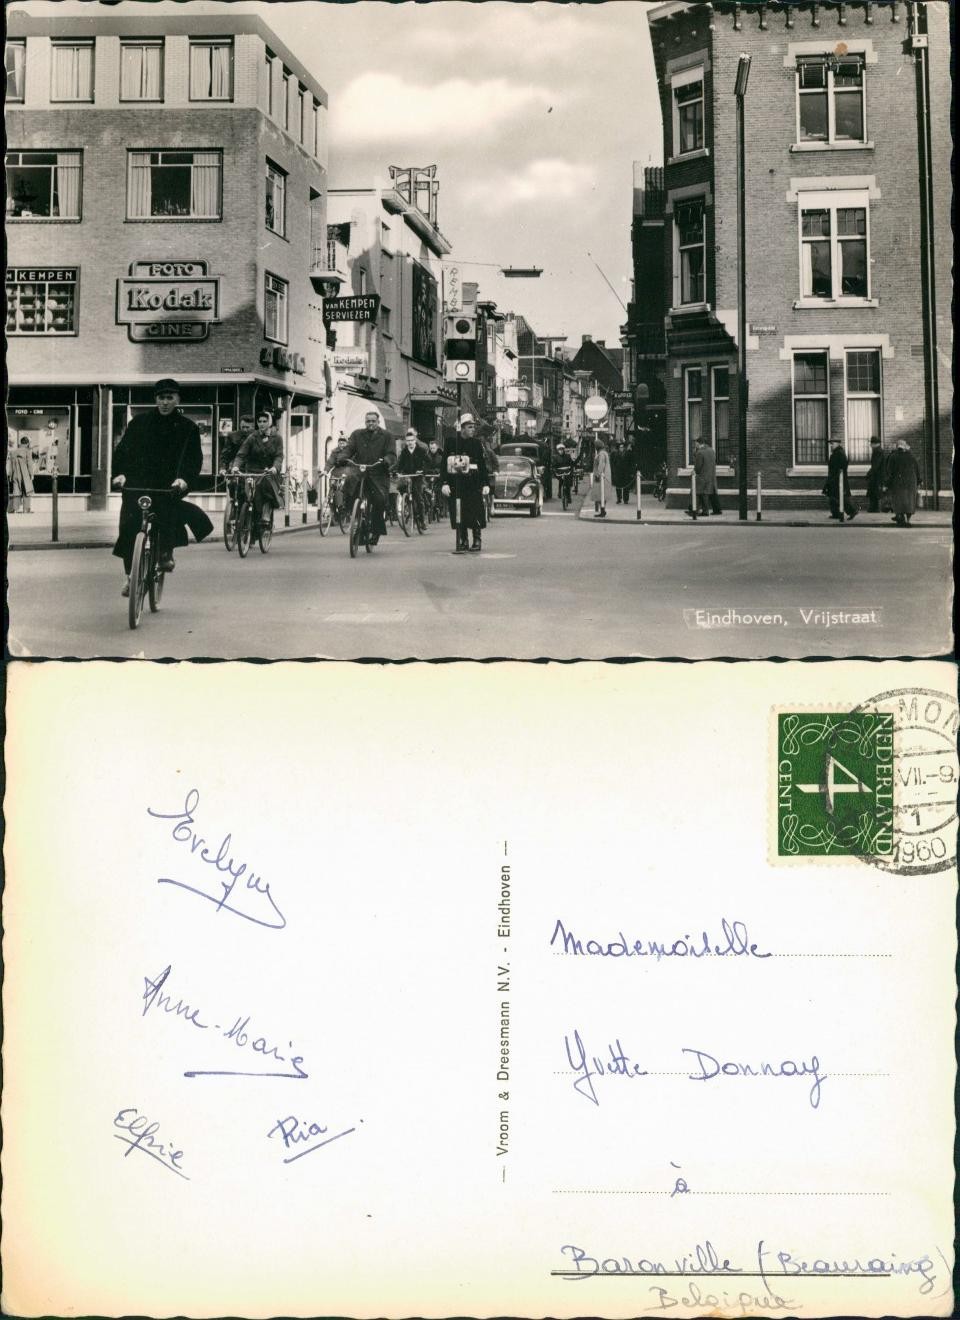 KEMPEN
FOTO
Kodak
CINE
VAN KEMPEN
SERVIEZEN
Kodak
FOTO - CINE
Eindhoven, Vrijstraat
NEDERLAND
4
CENT
MON
VII.-9.
1
1960
Evelyne
Anne-Marie
Elsie
Ria
— Vroom & Dreesmann N.V. - Eindhoven —
Mademoiselle
Yvette Donnay
à
Baronville (Beauraing)
Belgique